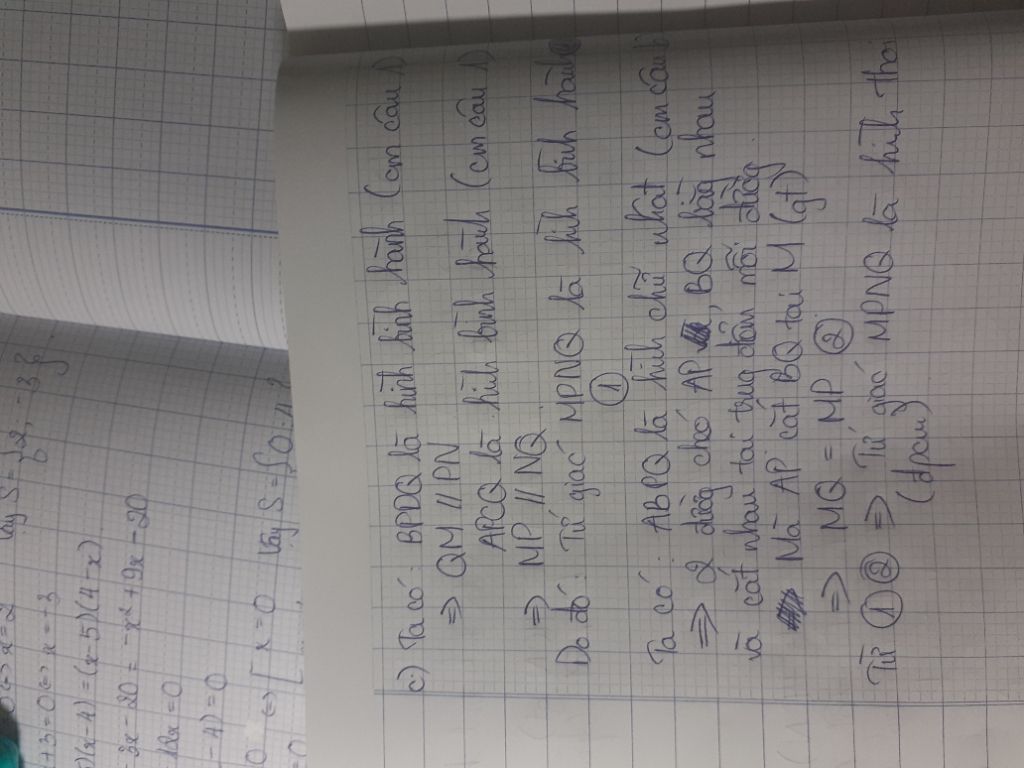 +3=0 <=> x=-3
)(x-4) = (x-5)(4-x)
3x - 20 = -x² + 9x - 20
x = 0
-4) = 0
<=> [ x = 0 Vậy S = {0
c) Ta có: BPDQ là hình bình hành (cm câu
=> QM // PN
APCQ là hình bình hành (cm câu
=> MP // NQ
Do đó: Tứ giác MPNQ là hình bình hành
①
Ta có: ABPQ là hình chữ nhật (cm câu
=> 2 đường chéo AP, BQ bằng nhau
và cắt nhau tại trung điểm mỗi đường
Mà AP cắt BQ tại M (gt)
=> MQ = MP ②
Từ ① ② => Tứ giác MPNQ là hình thoi
(đpcm)